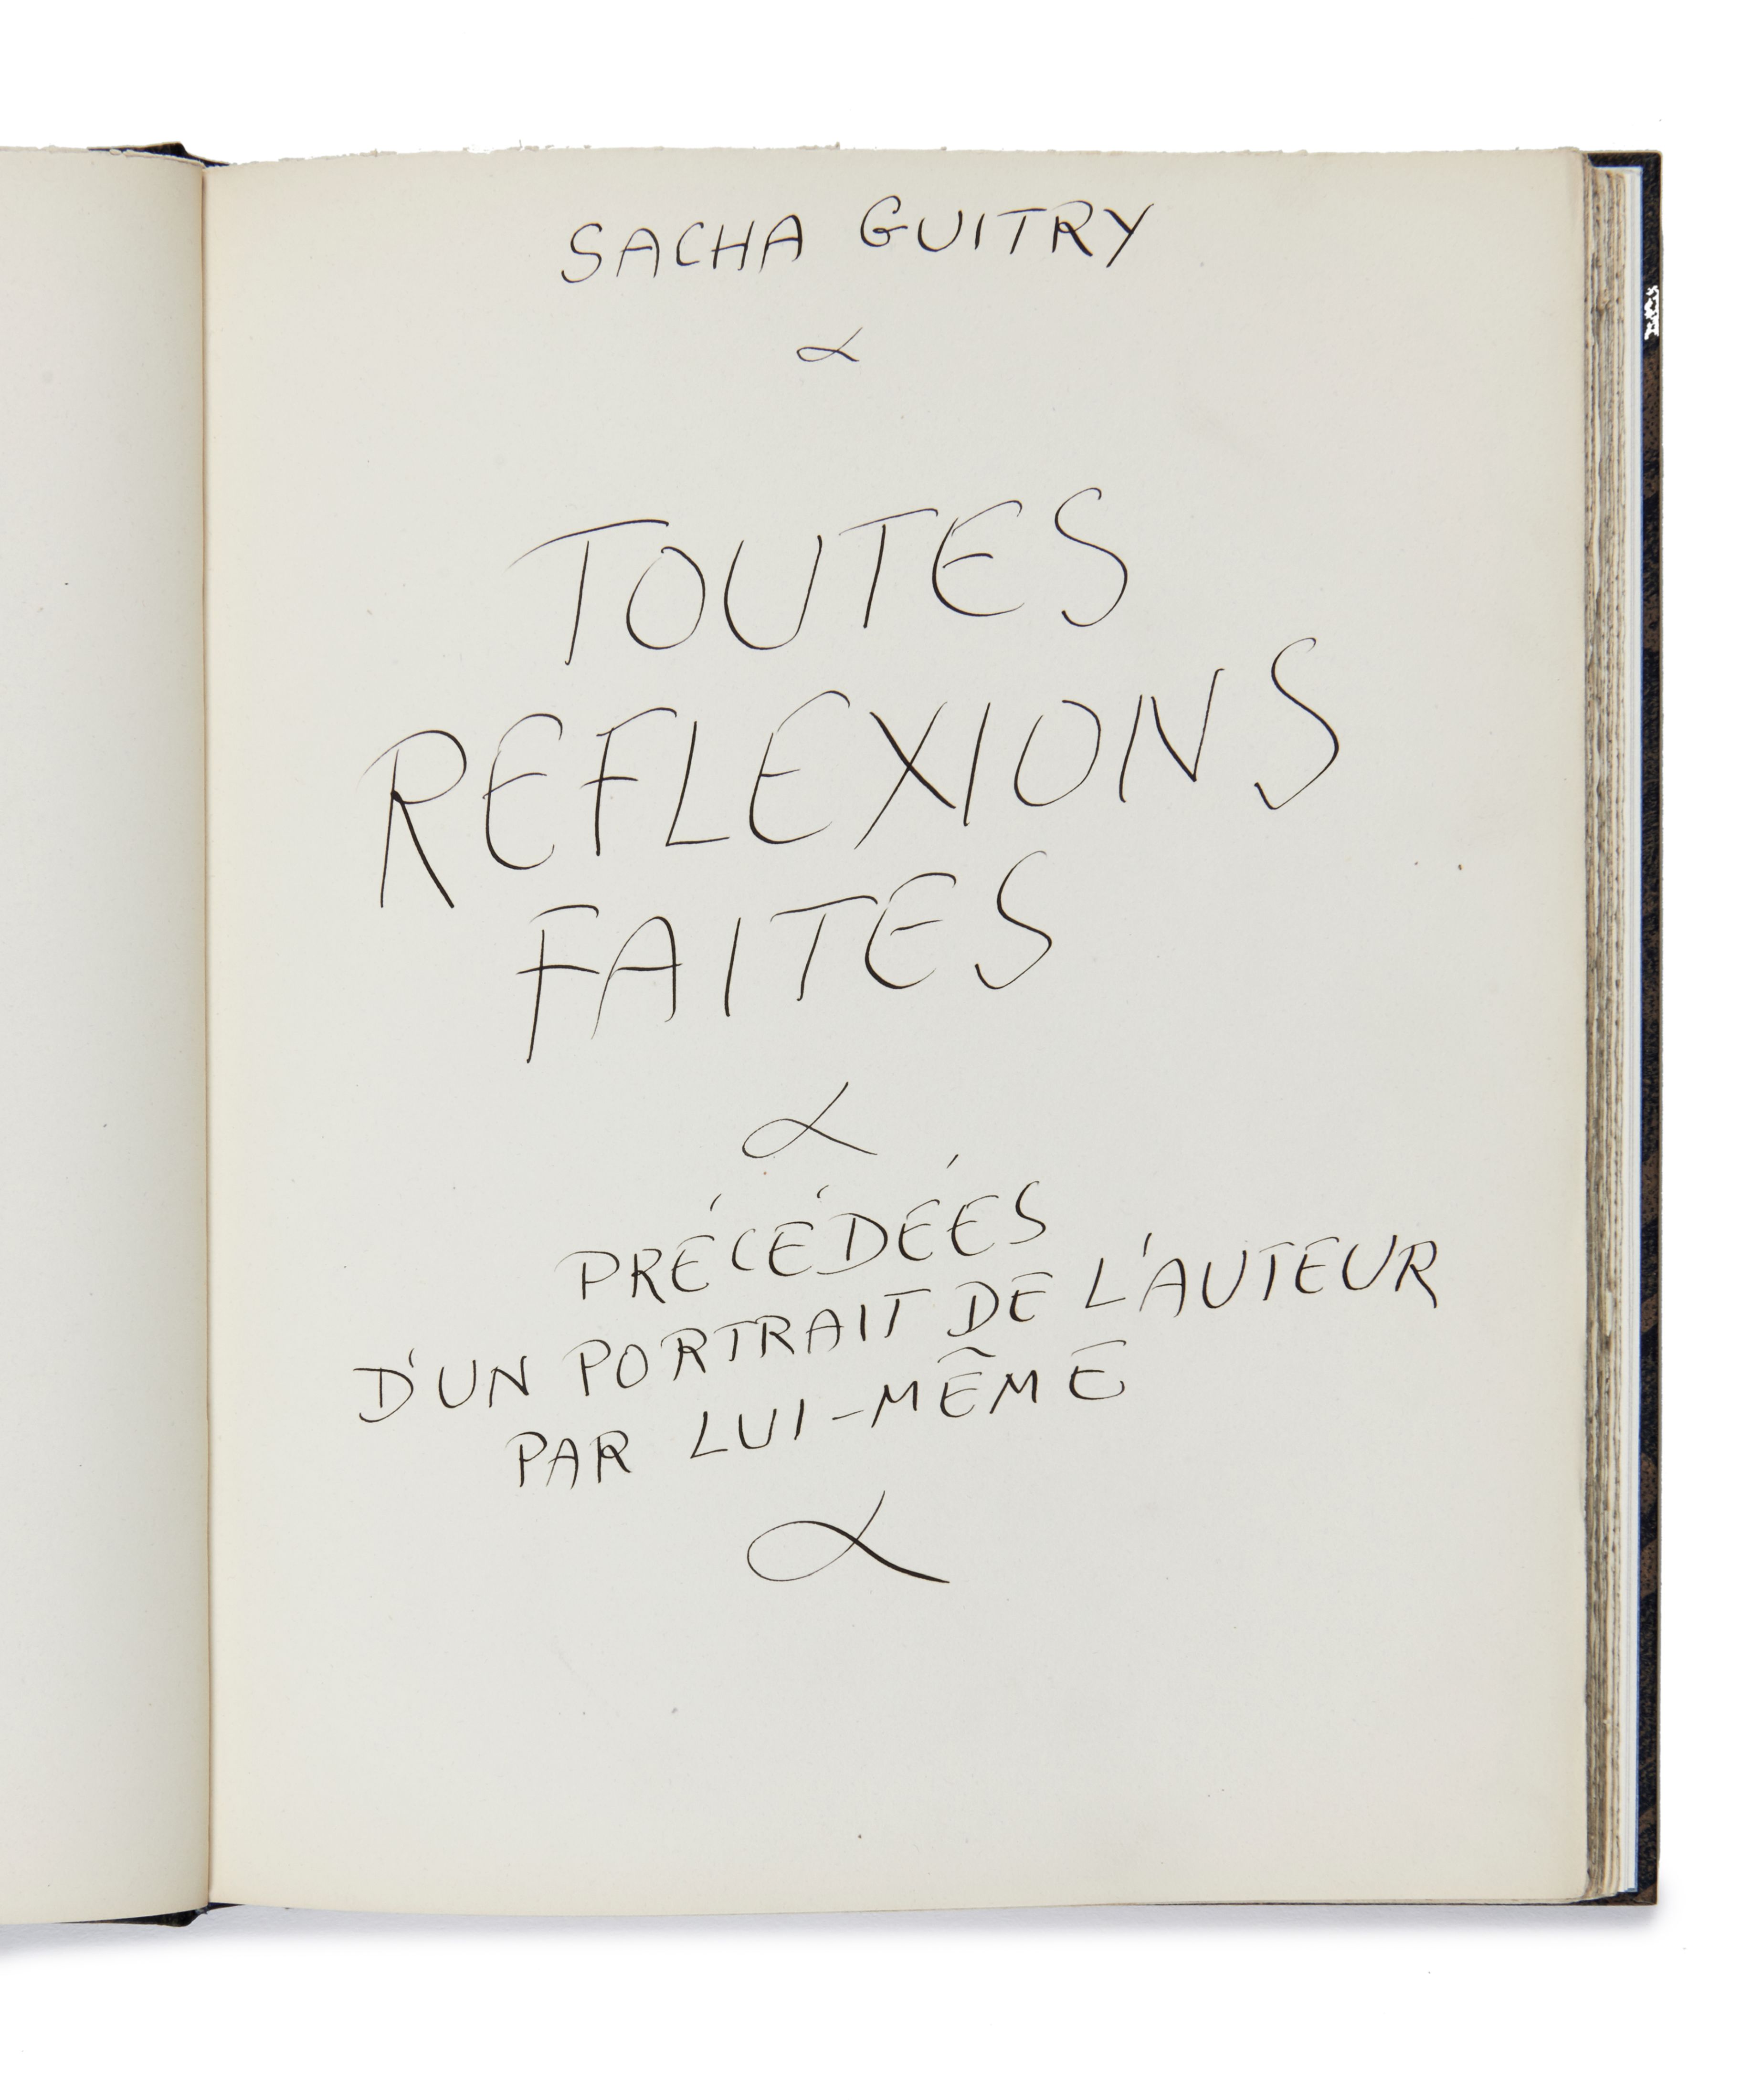 SACHA GUITRY
TOUTES
REFLEXIONS
FAITES
PRÉCÉDÉES
D'UN PORTRAIT DE L'AUTEUR
PAR LUI-MÊME